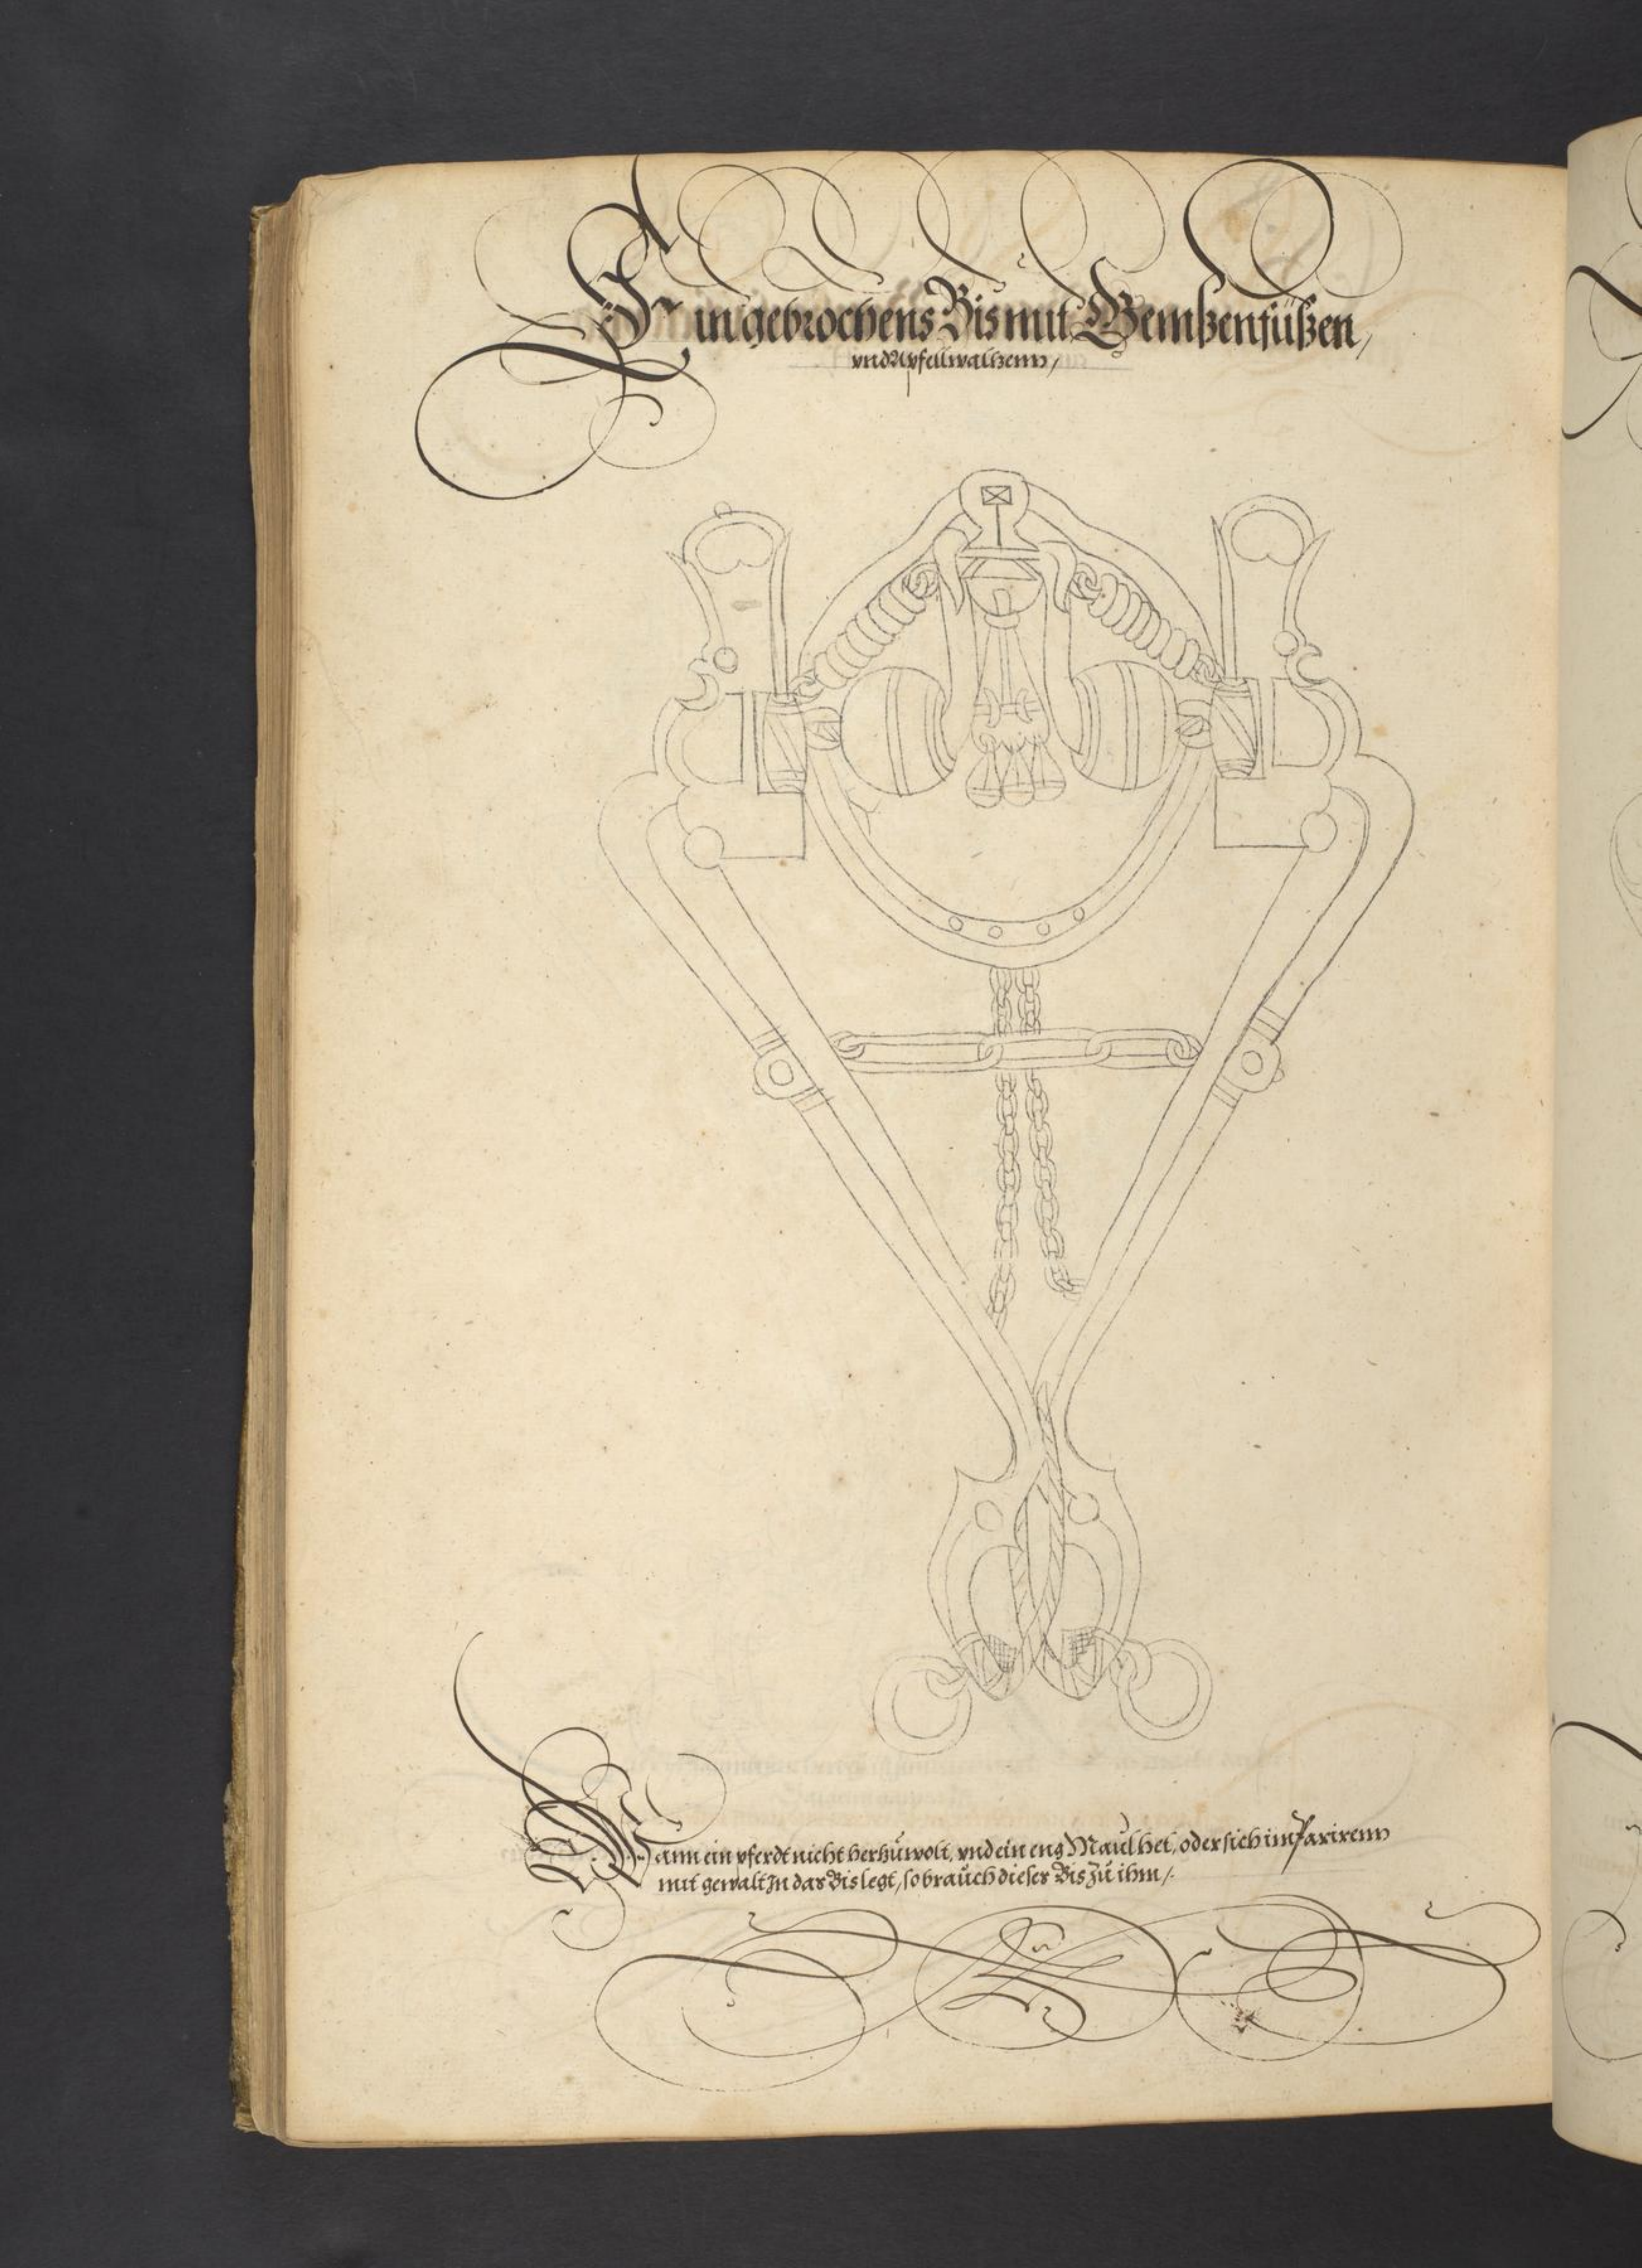 Ein gebrochens Bis mit Gembzenfüßen,
vnd Apfellwaltzenn,
Wann ein pferdt nicht herzŭ wolt, vnd ein eng Maŭl het, oder sich im Parirenn
mit gewalt In das Bis legt, so braŭch dieser Bis Zŭ ihm,